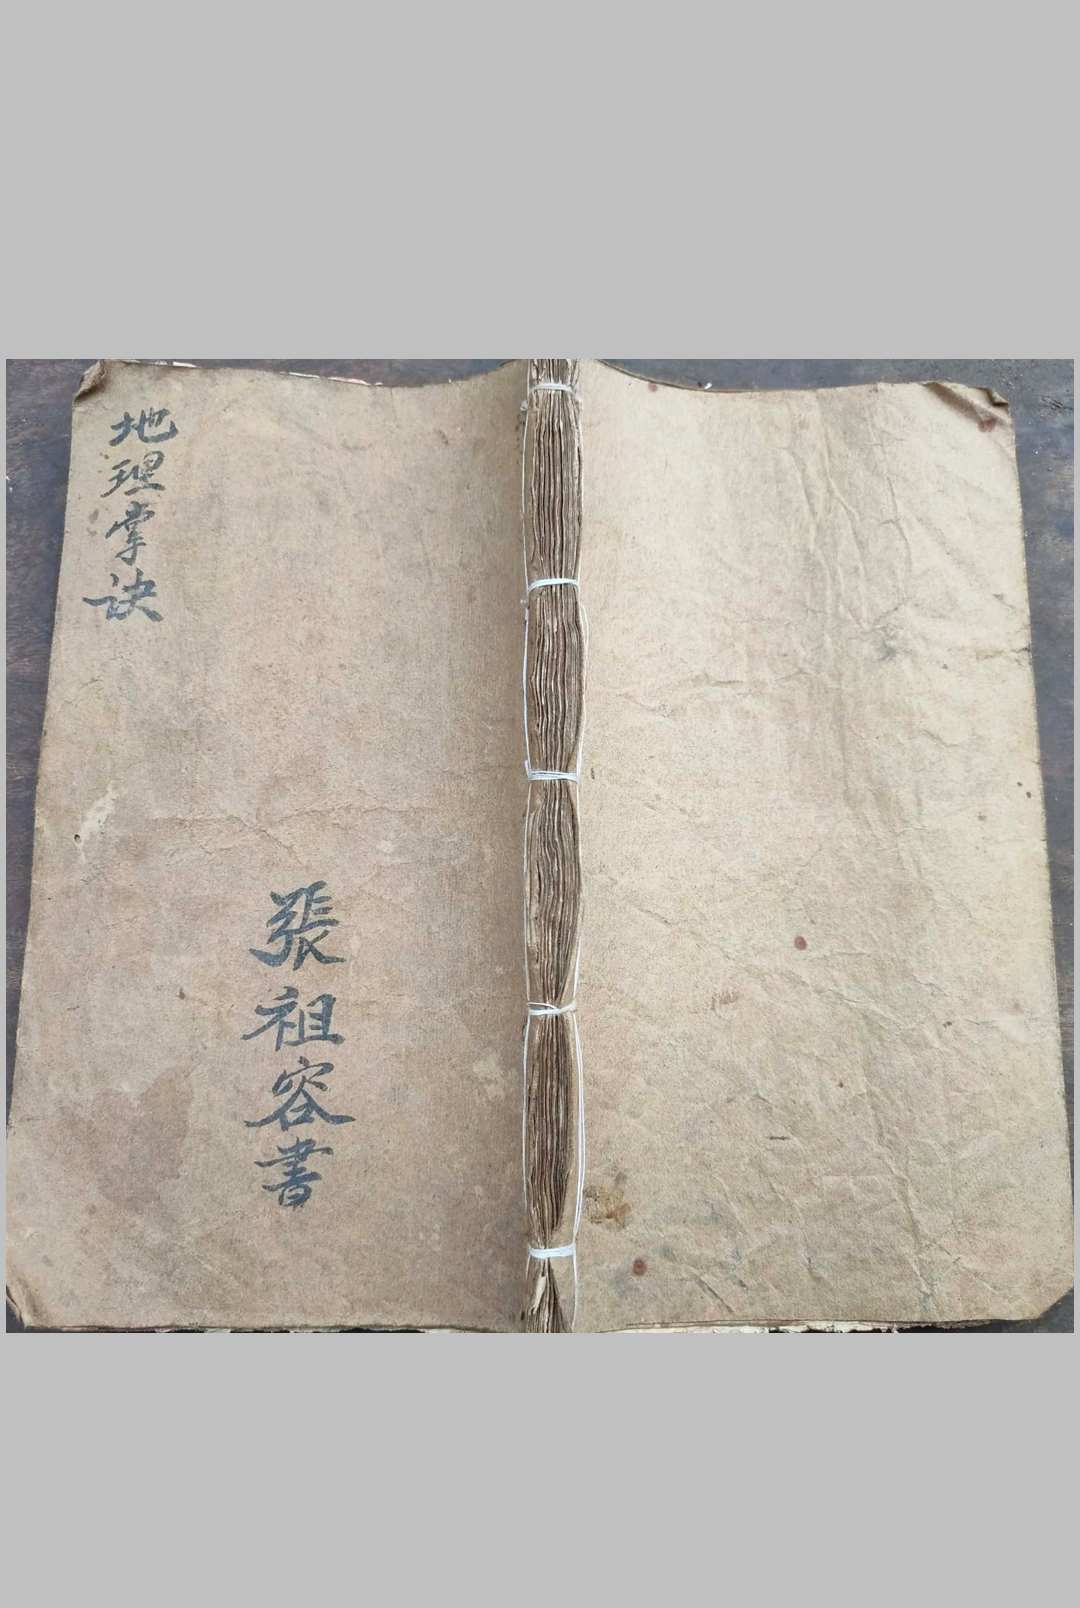 地理掌诀
張祖容書